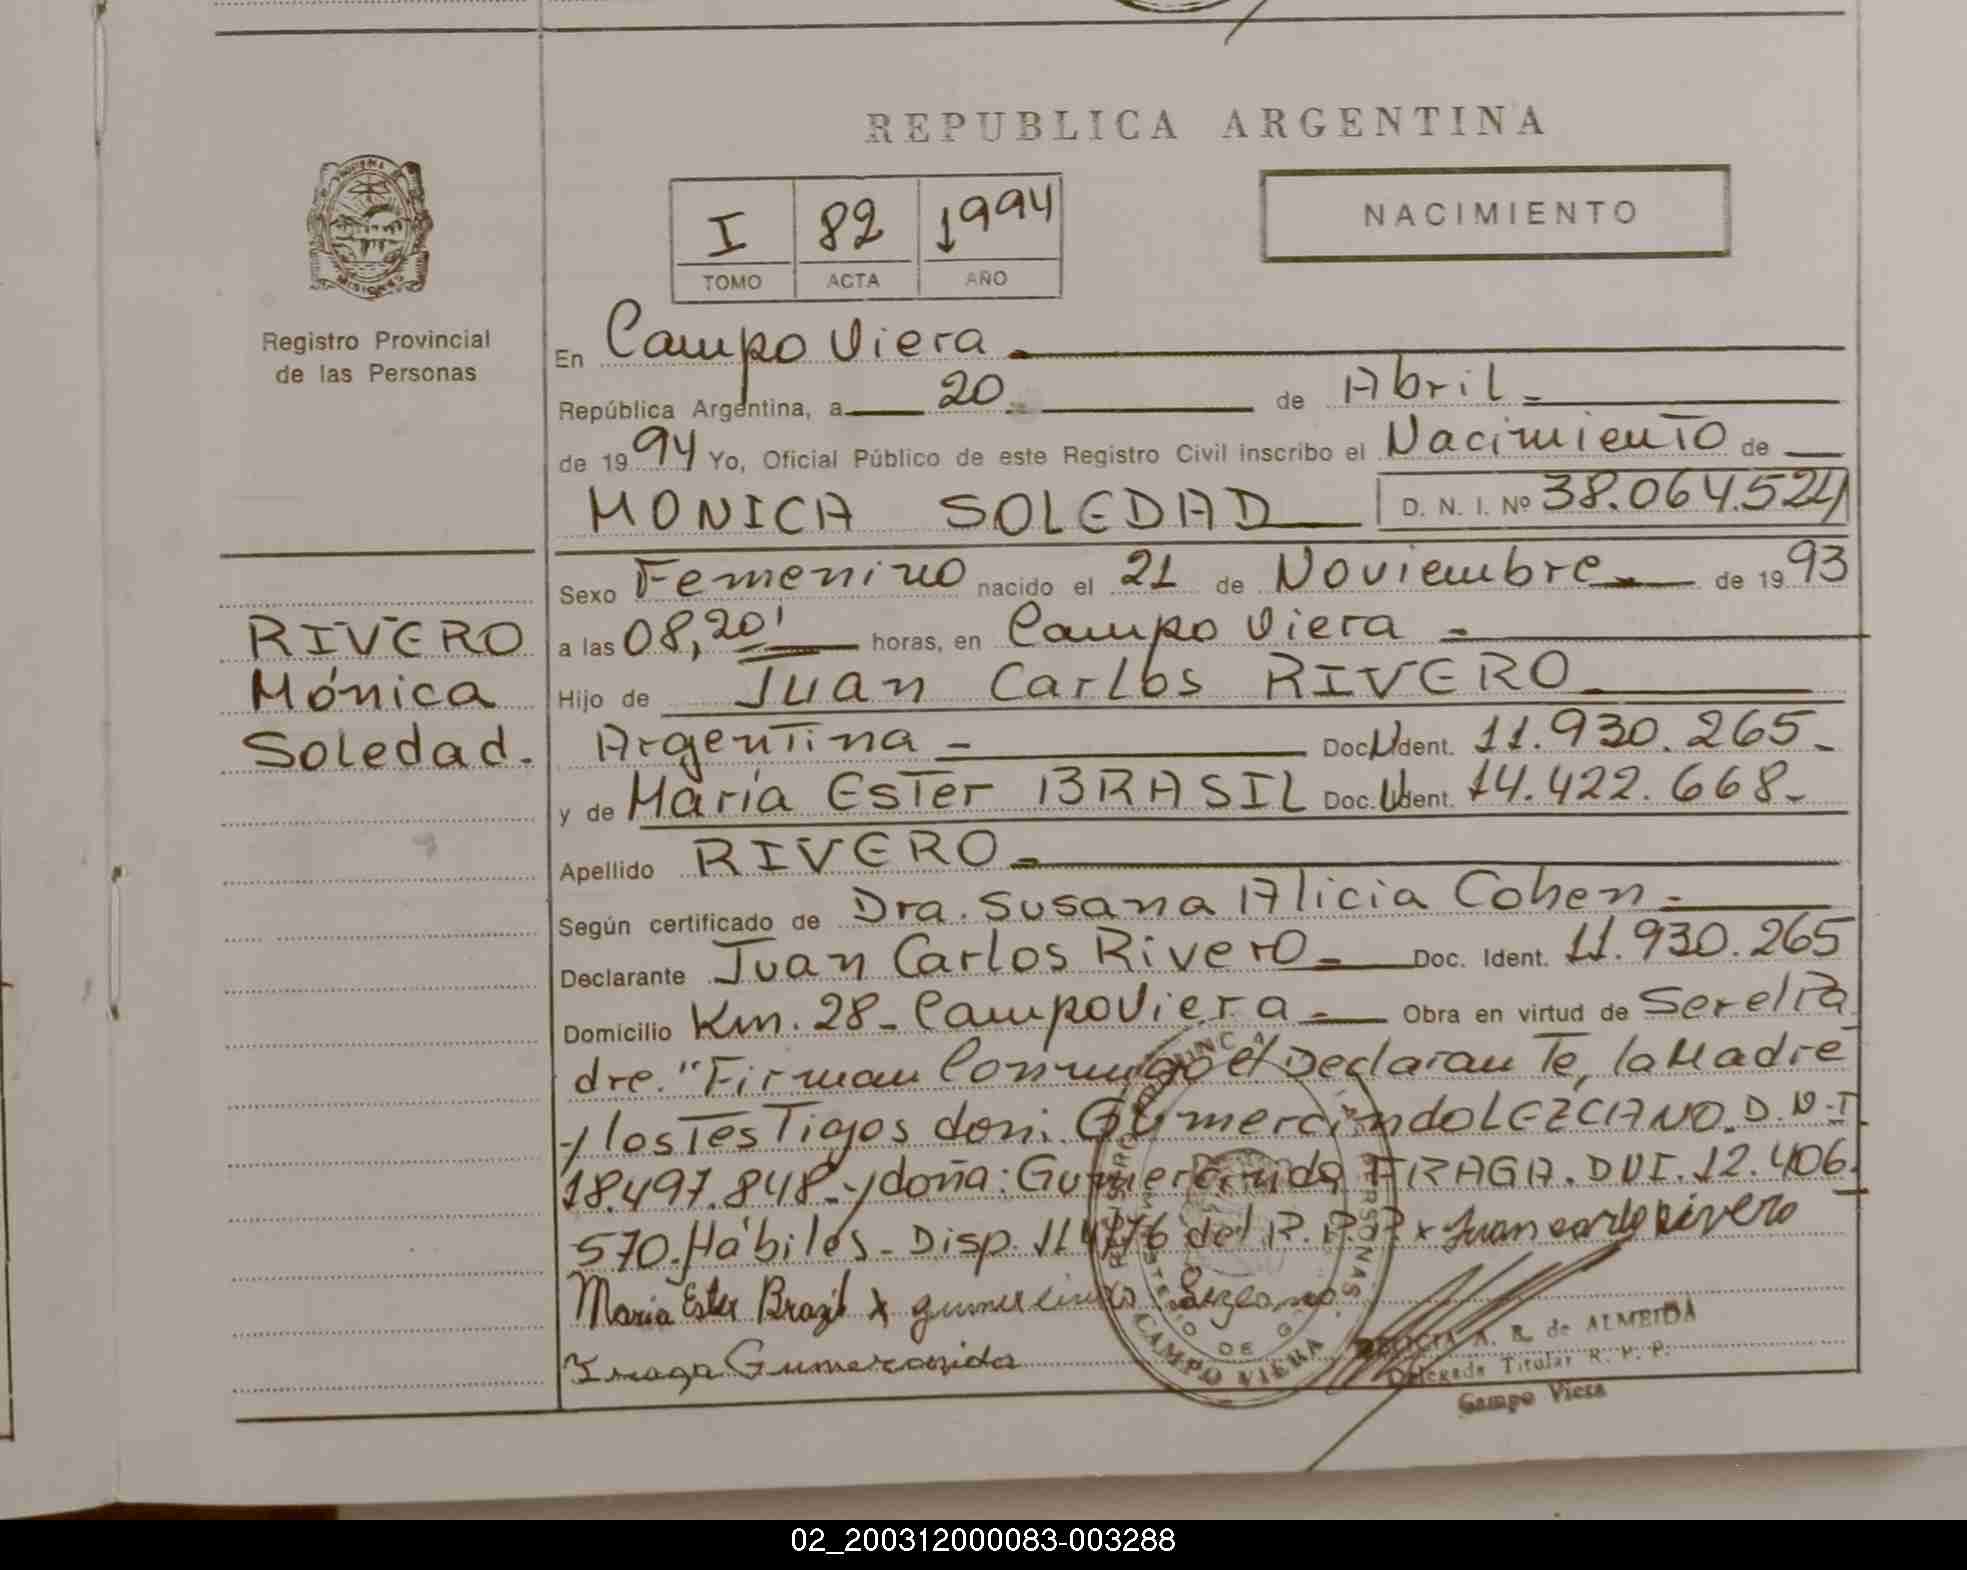 REPUBLICA ARGENTINA
I 82 1994
TOMO ACTA AÑO
NACIMIENTO
Registro Provincial
de las Personas
RIVERO
Mónica
Soledad.
En Campo Viera
República Argentina, a 20 de Abril
de 1994 Yo, Oficial Público de este Registro Civil inscribo el Nacimiento de
MONICA SOLEDAD D. N. I. Nº 38.064.524
Sexo Femenino nacido el 21 de Noviembre de 1993
a las 08,20' horas, en Campo Viera
Hijo de Juan Carlos RIVERO
Argentina Doc. Ident. 11.930.265
y de María Ester BRASIL Doc. Ident. 14.422.668
Apellido RIVERO
Según certificado de Dra. Susana Alicia Cohen
Declarante Juan Carlos Rivero Doc. Ident. 11.930.265
Domicilio Km. 28 - Campo Viera Obra en virtud de Ser el Pa
dre. "Firman Conmigo el Declarante, la Madre
y los Testigos don: Gumercindo LEZCANO. D.N.I
18.497.848 y doña: Gumercinda FRAGA. DNI. 12.406.
570. Hábiles - Disp. 114/76 del R.P.P. x Juan carlo Rivero
Maria Ester Brazil x gumercindo Lezcano
Fraga Gumercinda
A. R. de ALMEIDA
Delegada Titular R. P. P.
Campo Viera
PERSONAS
CAMPO VIERA
02_200312000083-003288